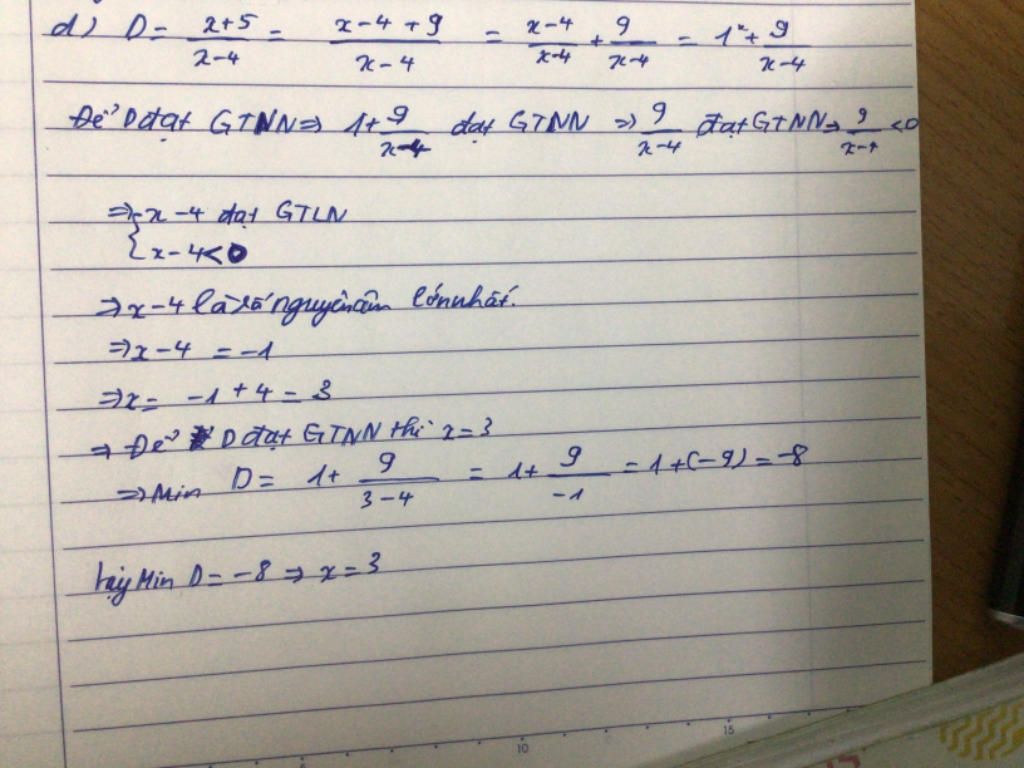 d) D = x+5/x-4 = x-4+9/x-4 = x-4/x-4 + 9/x-4 = 1 + 9/x-4
Để D đạt GTNN ⇒ 1+ 9/x-4 đạt GTNN ⇒ 9/x-4 đạt GTNN ⇒ 9/x-4 <0
⇒ { x-4 đạt GTLN
x-4<0
⇒ x-4 là số nguyên âm lớn nhất.
⇒ x-4 = -1
⇒ x = -1 + 4 = 3
⇒ Để D đạt GTNN thì x=3
⇒ Min D = 1+ 9/3-4 = 1+ 9/-1 = 1+(-9) = -8
Vậy Min D = -8 ⇒ x = 3
10 15